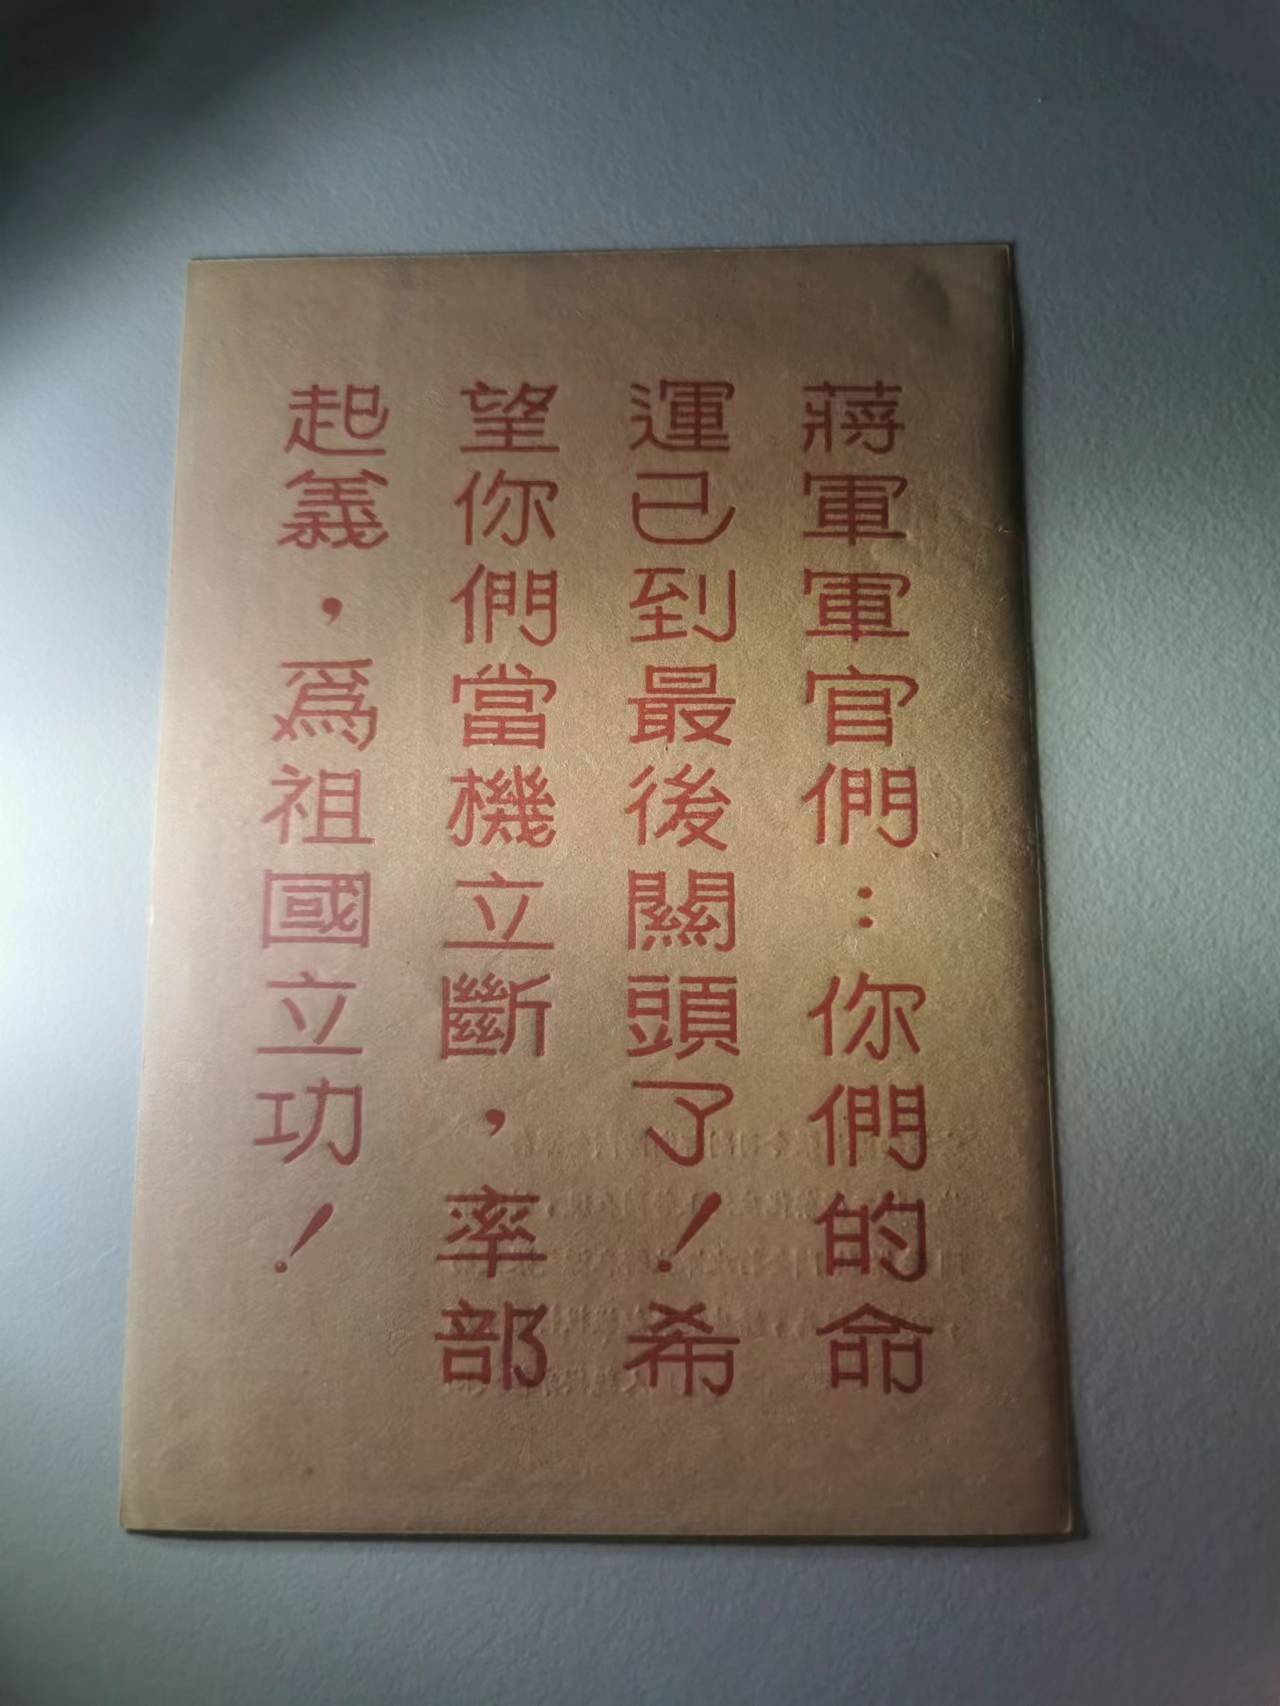 蔣軍軍官們：你們的命
運已到最後關頭了！希
望你們當機立斷，率部
起義，爲祖國立功！